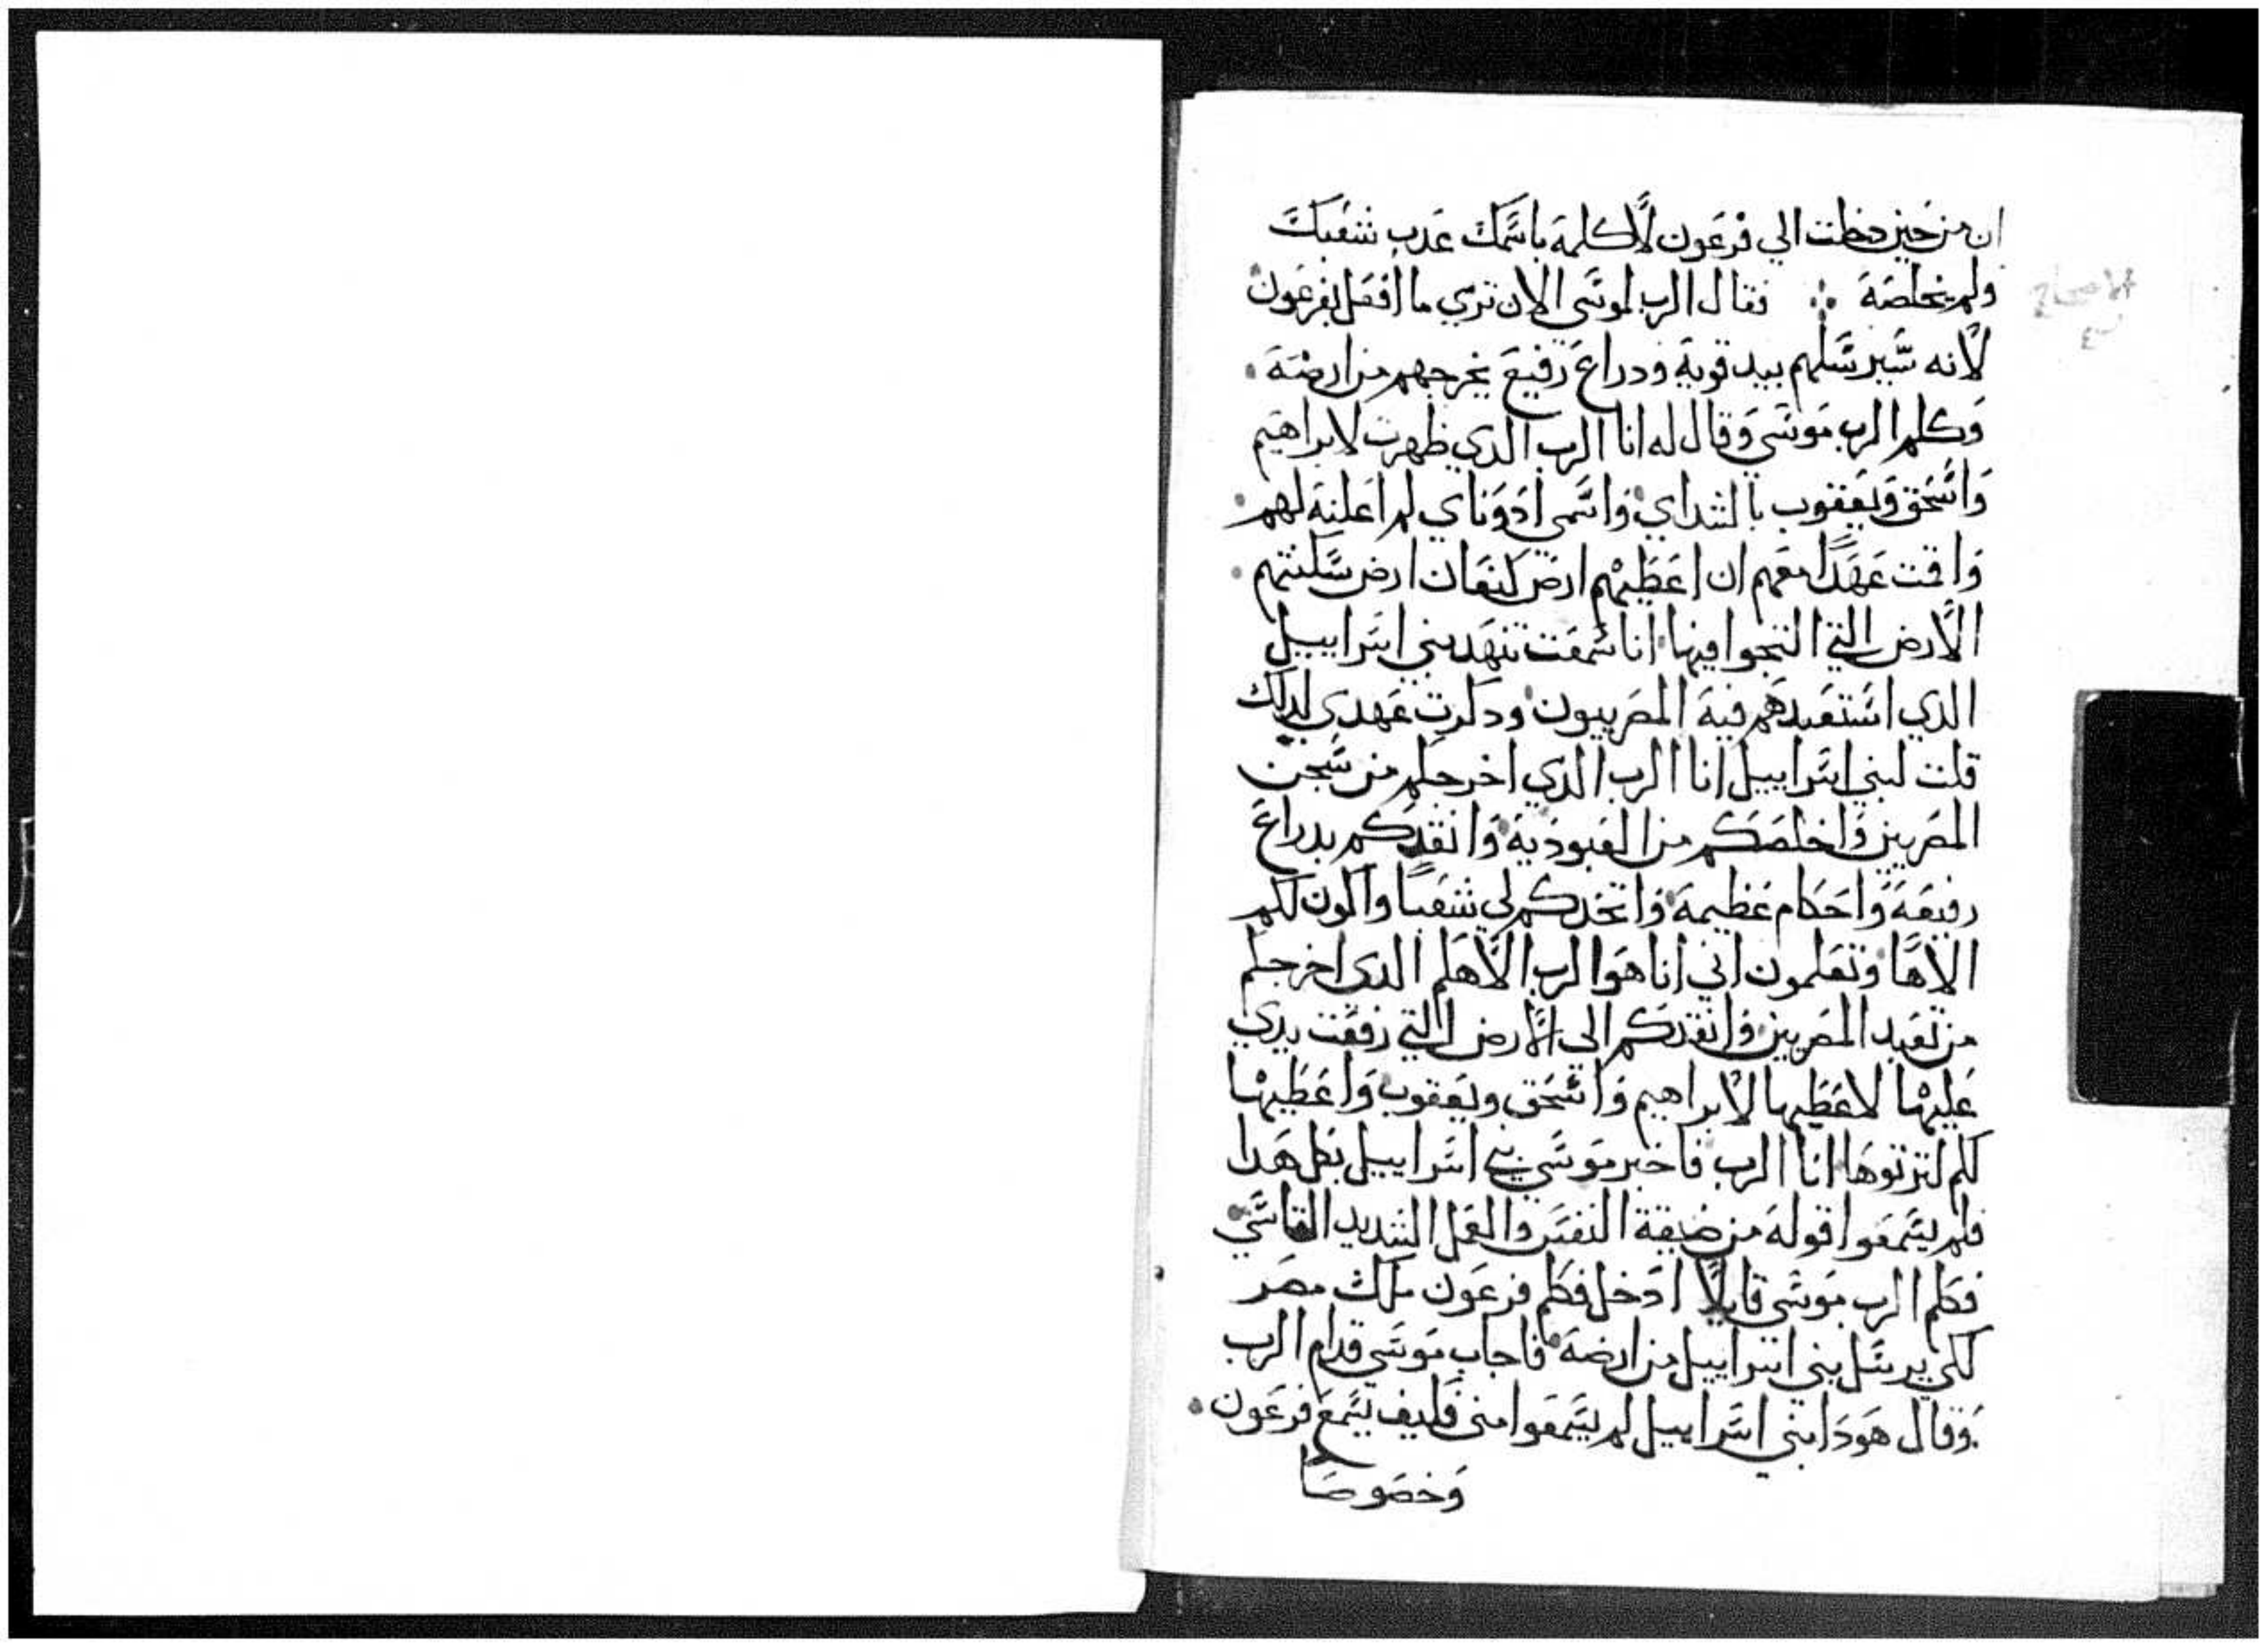 ان من حين دخلت الي فرعون لاكلمه باسمك عدب شعبك
ولم يخلصه ∴ فقال الرب لموسي الان تري ما افعل بفرعون
لانه سيرسلهم بيد قوية ودراع رفيع يخرجهم من ارضه
وكلم الرب موسي وقال له انا الرب الدي ظهرت لابراهيم
واسحق ويعقوب بالشداي واسمي ادوناي لم اعلنه لهم
واقمت عهدا معهم ان اعطيهم ارض كنعان ارض سكنتهم
الارض التي التجوا فيها انا سمعت تنهد بني اسراييل
الدي استعبدهم فيه المصرييون ودكرت عهدي لدلك
قلت لبني اسراييل انا الرب الدي اخرجكم من سجن
المصريين واخلصكم من العبودية وانقدكم بدراع
رفيعه واحكام عظيمة واتخدكم لي شعبا واكون لكم
الاها وتعلمون اني انا هو الرب الاهكم الدي اخرجكم
من تعبد المصريين وانقدكم الي الارض التي رفعت يدي
عليها لاعطيها لابراهيم واسحق ويعقوب واعطيها
لكم لترتوها انا الرب فاخبر موسي بني اسراييل بكل هدا
فلم يسمعوا قوله من ضيقة النفس والعمل الشديد القاسي
فكلم الرب موسي قايلا ادخل فكلم فرعون ملك مصر
لكي يرسل بني اسراييل من ارضه فاجاب موسي قدام الرب
وقال هودا بني اسراييل لم يسمعوا مني فكيف يسمع فرعون
وخصوصا